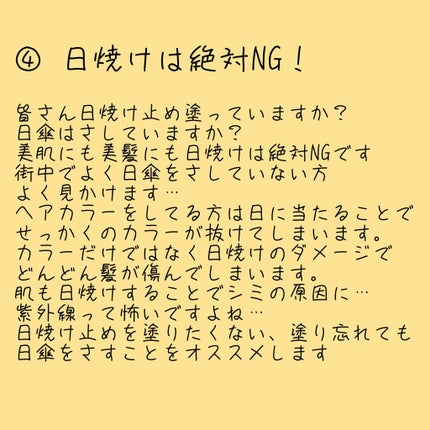 ④ 日焼けは絶対NG！
皆さん日焼け止め塗っていますか？
日傘はさしていますか？
美肌にも美髪にも日焼けは絶対NGです
街中でよく日傘をさしていない方
よく見かけます…
ヘアカラーをしてる方は日に当たることで
せっかくのカラーが抜けてしまいます。
カラーだけではなく日焼けのダメージで
どんどん髪が傷んでしまいます。
肌も日焼けすることでシミの原因に…
紫外線って怖いですよね…
日焼け止めを塗りたくない、塗り忘れても
日傘をさすことをオススメします